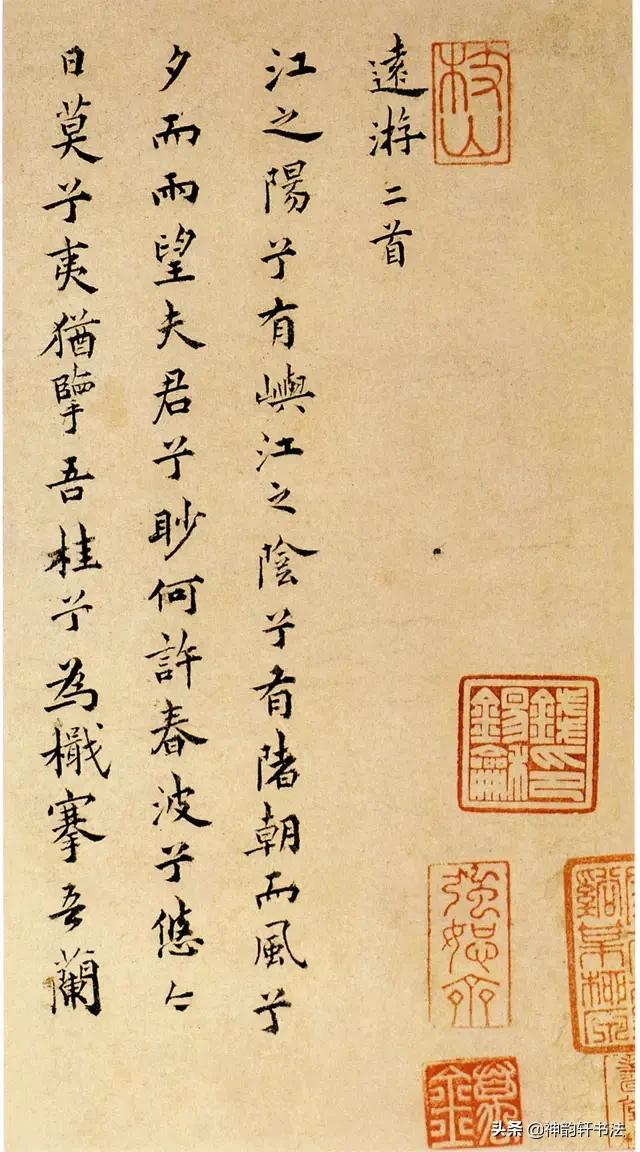 枝山
遠游二首
江之陽兮有嶼江之陰兮有陼朝而風兮
夕而雨望夫君兮眇何許春波兮悠々
日莫兮夷猶擥吾桂兮為檝搴吾蘭
強恕齋
头条 @神韵轩书法